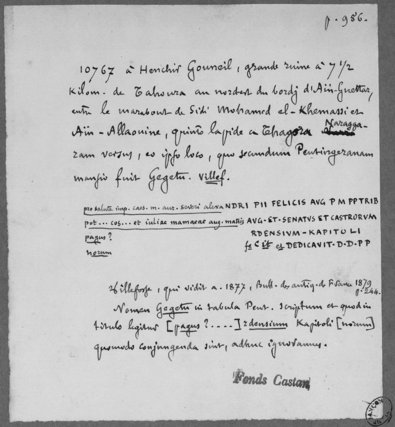 p. 986.
10767 à Henchir Gouneil, grande ruine à 7 1/2
kilom. de Tahoura au nordest du bordj d'Aïn-Guettar,
entre le marabout de Sidi Mohamed el-Khemassi et
Aïn-Allaouine, quinto lapide a Thagora Naragga-
ram versus, eo ipso loco, quo secundum Peutingeranam
mansio fuit Gegetu. Villef.
pro salute imp. caes. m. aur. severi alexaNDRI PII FELICIS AVG P M PP TRIB
pot... cos... et iuliae mamaeae aug. matris AVG·ET·SENATVS ET CASTRORVM
pagus? RDENSIVM·KAPITOLI
norum fec ET DEDICAVIT·D·D·PP
Villefosse, qui vidit a. 1877, Bull. des antiq. de France 1879
p. 244.
Nomen Gegetu in tabula Peut. scriptum et quod in
titulo legitur [pagus?....]rdensium Kapitoli [norum]
quomodo conjungenda sint, adhuc ignoramus.
Fonds Castan